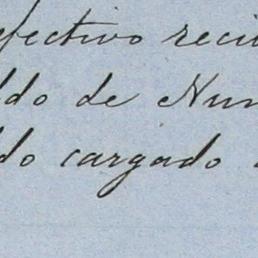 efectivo reci
ldo de Nu
do cargado